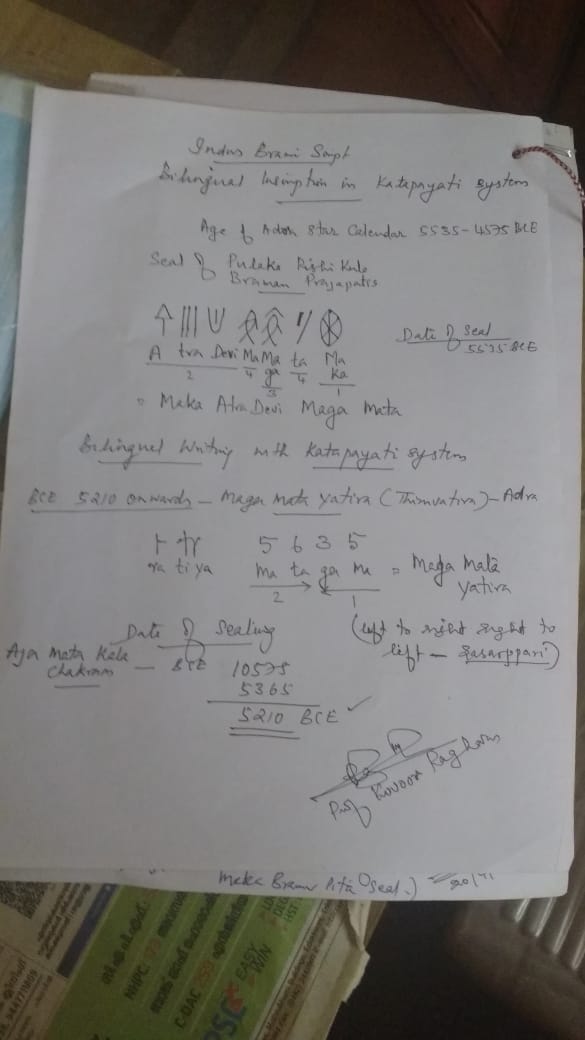 Indus Brami Script
Bilingual Inscription in Katapayati system
Age of Adra Star Calendar 5535-4575 BCE
Seal of Pulaka Rishi Kula
Braman Prajapatis
Date of Seal
5575 BCE
A tra Devi Ma Ma ta Ma
ga ka
2 4 3 4 1
= Maka Atra Devi Maga Mata
Bilingual Writing with Katapayati system
BCE 5210 onwards - Maga Mata Yatira (Thiruvatira) - Adra
5 6 3 5
ra ti ya ma ta ga ma = Maga Mata
Yatira
2 1
Date of Sealing
(left to right right to
left - Sasarppari)
Aja Mata Kala
Chakram - BCE 10575
5365
5210 BCE ✓
Prof Kovoor Raghavan
Maka Braman Pita (Seal)
NHPC:
C-DAC:
EASY
WIN
PSC